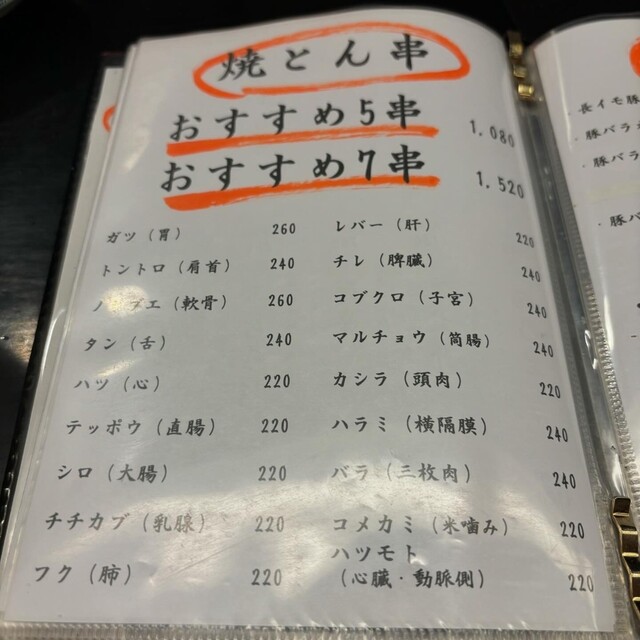 焼とん串
おすすめ5串 1.080
おすすめ7串 1.520
ガツ（胃） 260
トントロ（肩首） 240
エ（軟骨） 260
タン（舌） 240
ハツ（心） 220
テッポウ（直腸） 220
シロ（大腸） 220
チチカブ（乳腺） 220
フク（肺） 220
レバー（肝） 220
チレ（脾臓） 240
コブクロ（子宮） 240
マルチョウ（筒腸） 240
カシラ（頭肉） 220
ハラミ（横隔膜） 240
バラ（三枚肉） 240
コメカミ（米噛み） 220
ハツモト
（心臓・動脈側） 220
・長イモ豚
・豚バラ
・豚バラ
・豚バ